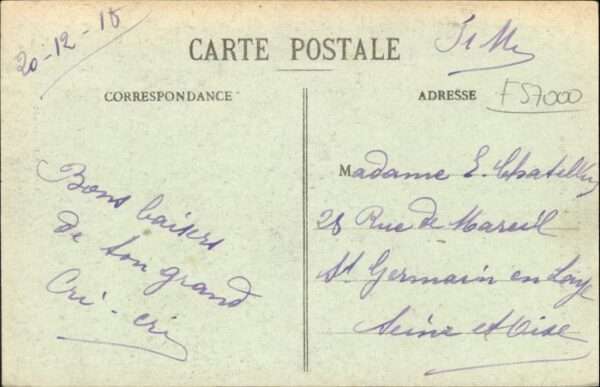 20-12-18
CARTE POSTALE
CORRESPONDANCE
ADRESSE
F57000
Bons baisers
de ton grand
Cri-cri
Madame E. Chatellun
28 Rue de Mareil
St Germain en Laye
Seine et Oise